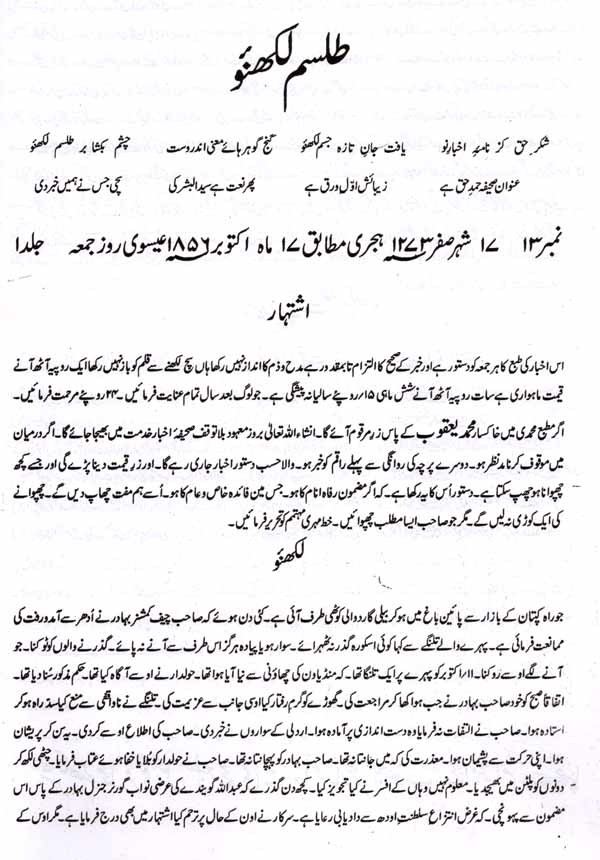 طلسم لکھنؤ
شکر حق کز نامۂ اخبار نو یافت جان تازہ جسم لکھنؤ گنج گوہر ہائے معنی اندروست چشم بکشا بر طلسم لکھنؤ
عنوان صحیفہ حمد حق ہے زیبائش اوّل ورق ہے پھر نعت ہے سید البشر کی سچی جس نے ہمیں خبر دی
نمبر ۱۳ ۱۷ شہر صفر ۱۲۷۳ ہجری مطابق ۱۷ ماہ اکتوبر ۱۸۵۶ عیسوی روز جمعہ جلد ۱
اشتہار
اس اخبار کی طبع کا ہر جمعہ کو دستور ہے اور خبر کے صحیح کا التزام تا بمقدور ہے مدح و ذم کا انداز نہیں رکھا ہاں سچ لکھنے سے قلم کو باز نہیں رکھا ایک روپیہ آٹھ آنے
قیمت ماہواری ہے سات روپیہ آٹھ آنے شش ماہی ۱۵؍ روپئے سالیانہ پیشگی ہے۔ جو لوگ بعد سال تمام عنایت فرمائیں۔ ۲۴ روپئے مرحمت فرمائیں۔
اگر مطبع محمدی میں خاکسار محمد یعقوب کے پاس زر مرقوم آئے گا۔ انشاء اللہ تعالیٰ بروز معہود بلا توقف صحیفۂ اخبار خدمت میں بھیجا جائے گا۔ اگر درمیان
میں موقوف کرنا مدنظر ہو۔ دوسرے پرچہ کی روانگی سے پہلے راقم کو خبر ہو۔ والا حسب دستور اخبار جاری رہے گا۔ اور زر قیمت دینا پڑے گی اور جسے کچھ
چھپوانا ہو چھپ سکتا ہے۔ دستور اُس کا یہ رکھا ہے۔ کہ اگر مضمون رفاہ انام کا ہو۔ جس میں فائدہ خاص و عام کا ہو۔ اُسے ہم مفت چھاپ دیں گے۔ چھپوانے
کی ایک کوڑی نہ لیں گے۔ مگر جو صاحب ایسا مطلب چھپوائیں۔ خط مہری مہتمم کو تحریر فرمائیں۔
لکھنؤ
جو راہ کپتان کے بازار سے پائین باغ میں ہو کر بیلی گارد والی کوٹھی طرف آئی ہے۔ کئی دن ہوئے کہ صاحب چیف کمشنر بہادر نے اُدھر سے آمد و رفت کی
ممانعت فرمائی ہے۔ پہرے والے تلنگے سے کہا کوئی اسکورہ گذر نہ ٹھہرائے۔ سوار ہو یا پیادہ ہرگز اس طرف سے آنے نہ پائے۔ گذرنے والوں کو ٹوکنا۔ جو
آنے لگے اوسے روکنا۔ ۱۱؍ اکتوبر کو پہرے پر ایک تلنگا تھا۔ کہ منڈیاون کی چھاؤنی سے نیا آیا ہوا تھا۔ حولدار نے اوسے آگاہ کیا تھا۔ حکم مذکور سنا دیا تھا۔
اتفاقاً صبح کو خود صاحب بہادر نے جب ہوا کھا کر مراجعت کی۔ گھوڑے کو گرم رفتار کیا اوسی جانب سے عزیمت کی۔ تلنگے نے ناواقفی سے منع کیا سد راہ ہو کر
استادہ ہوا۔ صاحب نے التفات نہ فرمایا وہ دست اندازی پر آمادہ ہوا۔ اردلی کے سواروں نے خبر دی۔ صاحب کی اطلاع اوسے کر دی۔ یہ سن کر پریشان
ہوا۔ اپنی حرکت سے پشیمان ہوا۔ معذرت کی کہ میں جانتا نہ تھا۔ صاحب بہادر کو پہچانتا نہ تھا۔ صاحب نے حولدار کو بلایا خفا ہوئے عتاب فرمایا۔ چٹھی لکھ کر
دونوں کو پلٹن میں بھیجدیا۔ معلوم نہیں وہاں کے افسر نے کیا تجویز کیا۔ کچھ دن گذرے کہ عبداللہ گویندے کی عرضی نواب گورنر جنرل بہادر کے پاس اس
مضمون سے پہونچی۔ کہ غرض انتزاع سلطنت اودھ سے دادیابی رعایا ہے۔ سرکار نے اون کے حال پر ترحم کیا اشتہار میں بھی درج فرمایا ہے۔ مگر اوس کے